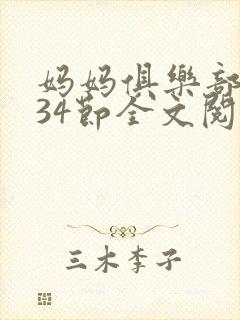 妈妈俱樂部
34節全文閱
三木李子